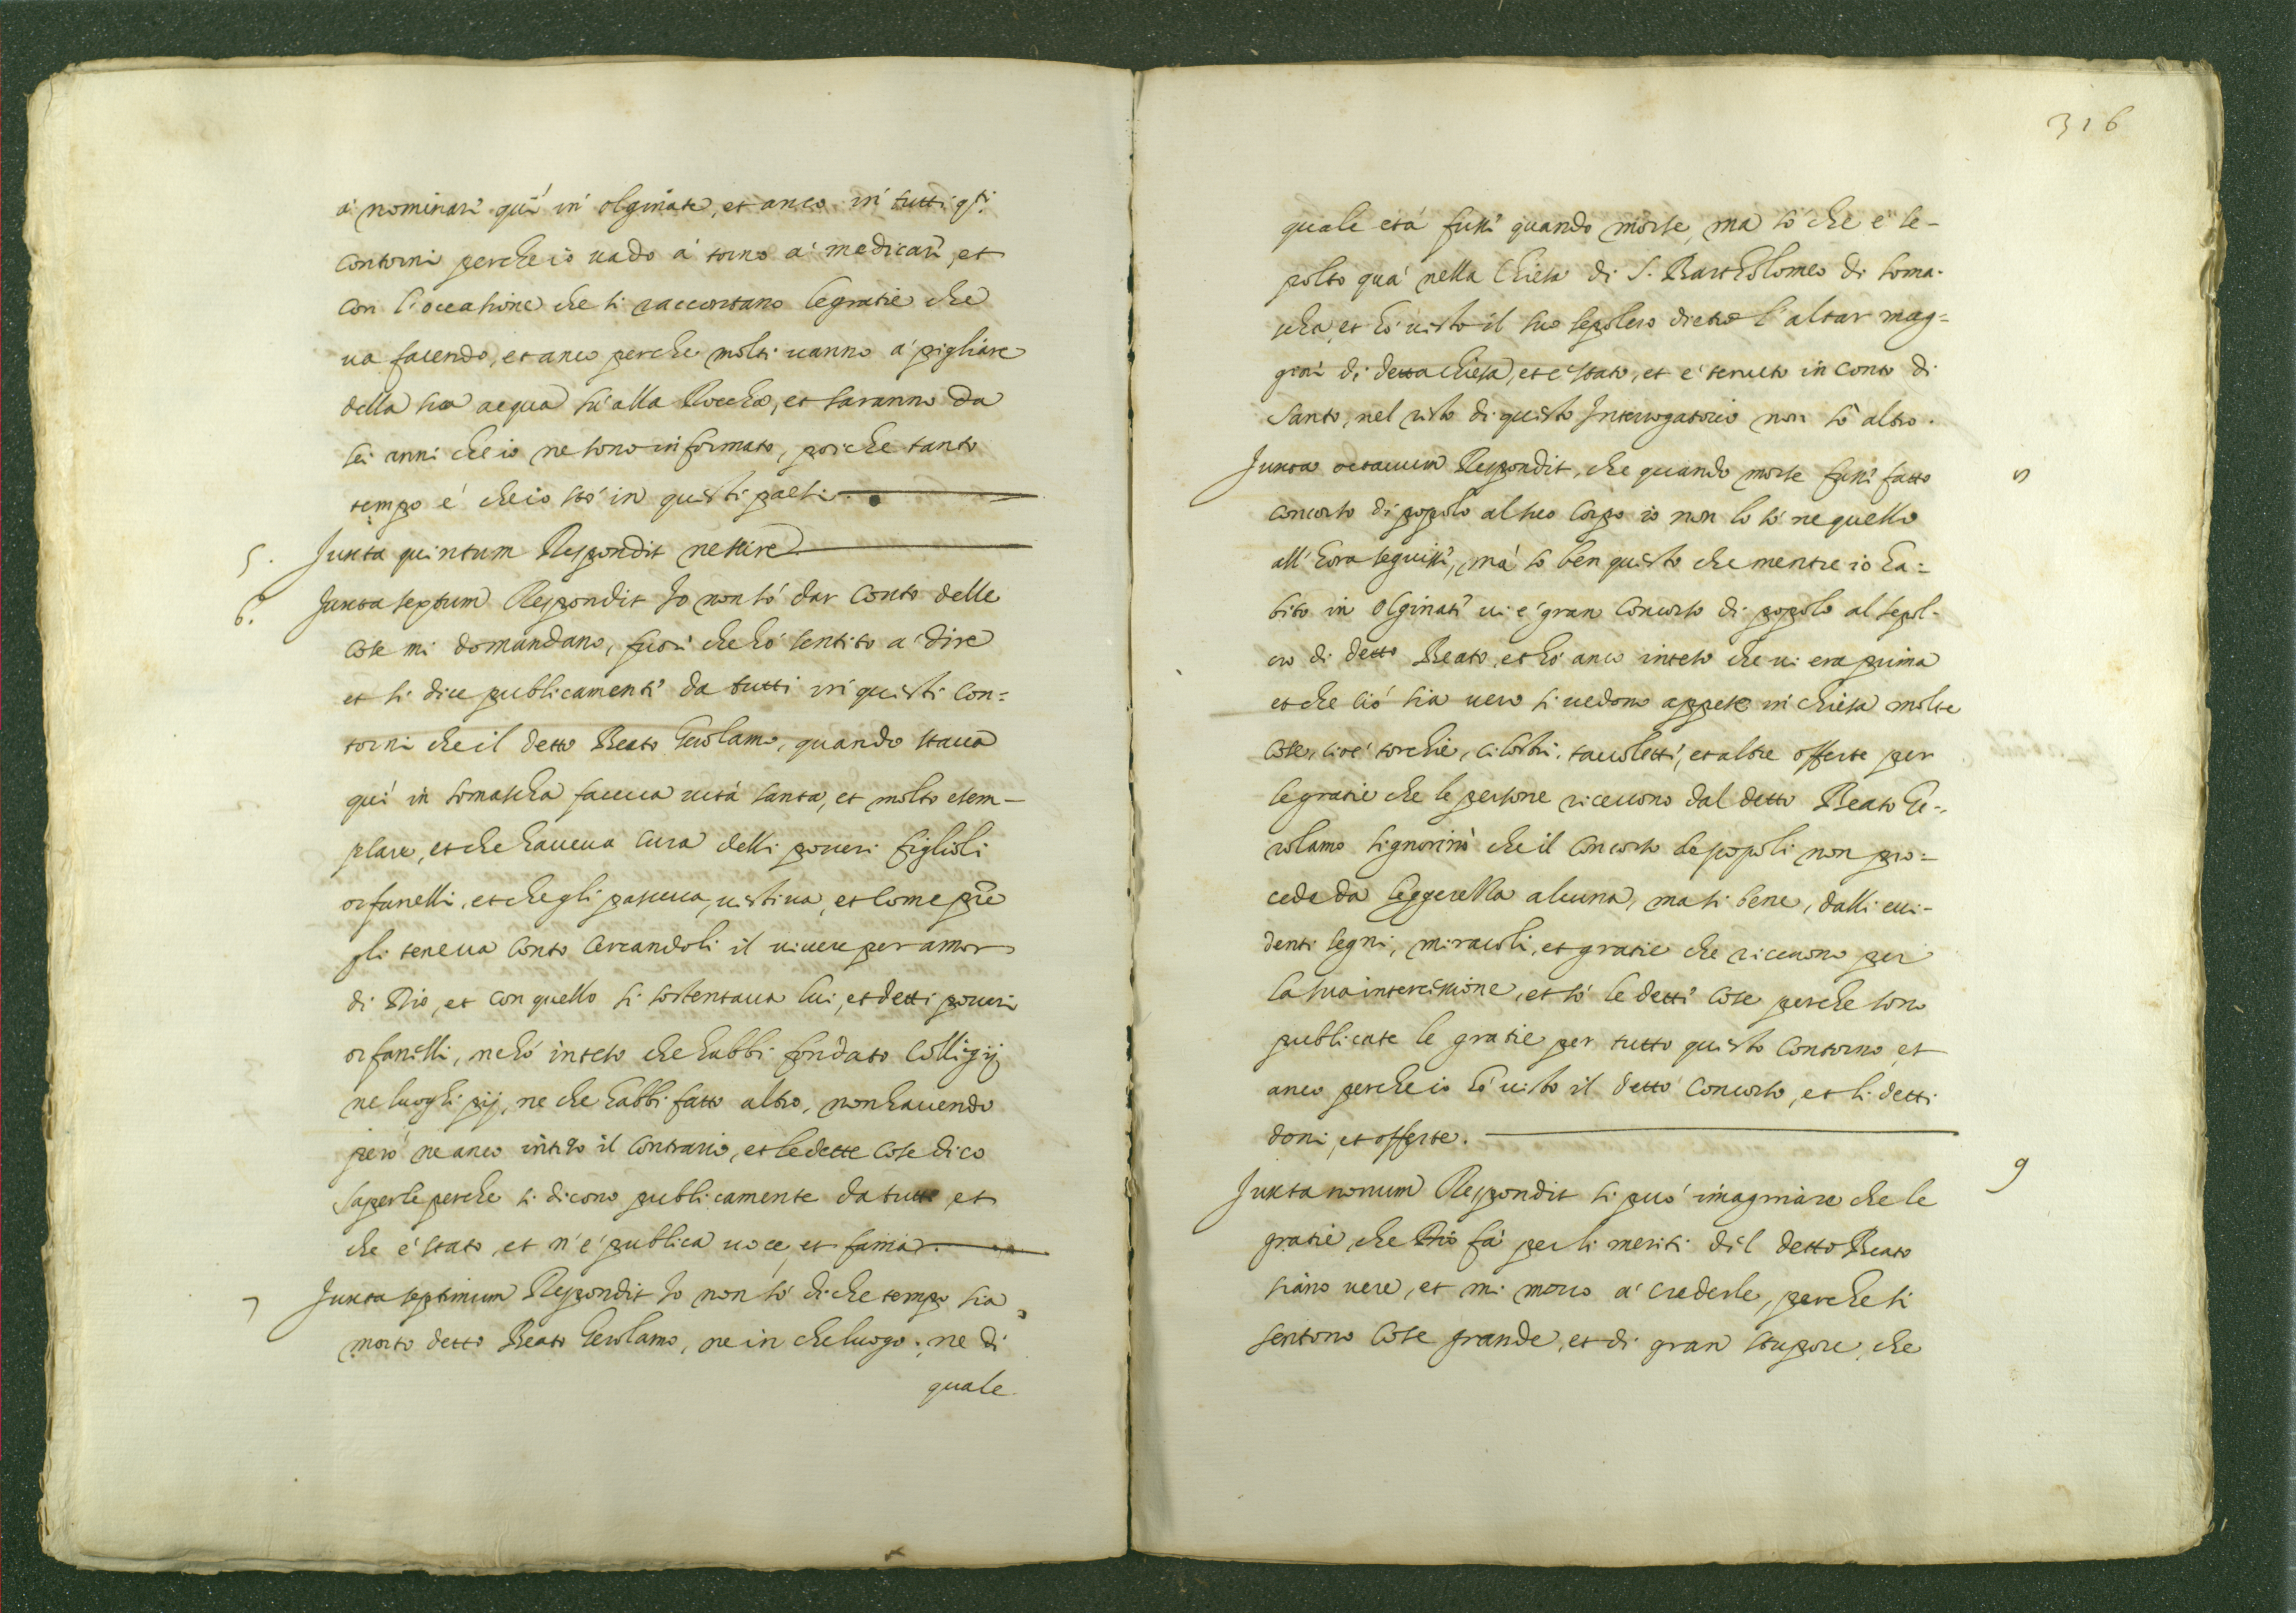 à nominari quì in olginate, et anco in tutti q.sti
contorni perche io uado à torno à medicari, et
con l'occasione che si raccontano le gratie che
ua facendo, et anco perche molti uanno à pigliare
della sua acqua sù alla Roccha, et saranno da
sei anni che io ne sono informato, poiche tanto
tempo è che io stò in questi paesi.
5. Juxta quintum Respondit nescire
6. Juxta sextum Respondit Io non sò dar conto delle
cose mi domandano, fuori che hò sentito à dire
et si dice publicamenti da tutti in questi con=
torni che il detto Beato Gerolamo, quando staua
quì in somascha faceua uita santa, et molto esem-
plare, et che haueua cura delli poueri figlioli
orfanelli, et che gli pasceua, uestiua, et come pre
gli teneua conto cercandoli il uiuere per amor
di Dio, et con quello si sostentaua lui, et detti poueri
orfanelli, ne hò inteso che habbi fondato Collegij
ne luoghi pij, ne che habbi fatto altro, non hauendo
però ne anco inteso il contrario, et le dette cose dico
saperle perche si dicono publicamente da tutti et
che è stato, et n'è publica uoce, et fama.
7 Juxta septimum Respondit Io non sò di che tempo sia
morto detto Beato Gerolamo, ne in che luogo, ne di
quale
316
quale età fussi quando morse, ma sò che è se-
polto quà nella Chiesa di S. Bartholomeo di soma-
scha, et hò uisto il suo sepolcro dietro l'altar mag=
giori di detta Chiesa, et è stato, et è tenuto in conto di
Santo, nel resto di questo Interrogatorio non sò altro.
Juxta octauum Respondit, che quando morse fussi fatto
concorso di popolo al suo corpo io non lo sò ne quello
all'hora seguissi, mà so ben questo che mentre io ha=
bito in Olginati ui è gran concorso di popolo al sepol-
cro di detto Beato, et hò anco inteso che ui era prima
et che ciò sia uero si uedono appese in chiesa molte
cose, cioè torchie, cilostri, tauoletti, et altre offerte per
le gratie che le persone riceuono dal detto Beato Ge-
rolamo signorinò che il concorso de popoli non pro=
ceda da leggerezza alcuna, ma si bene, dalli eui-
denti segni, miracoli, et gratie che riceuono per
la sua intercessione, et sò le detti cose perche sono
publicate le gratie per tutto questo contorno, et
anco perche io hò uisto il detto concorso, et li detti
doni, et offerte.
9 Juxta nonum Respondit si può imaginare che le
gratie che Dio fà per li meriti del detto Beato
siano uere, et mi mouo à crederle, perche si
sentono cose grande, et di gran stupore, che